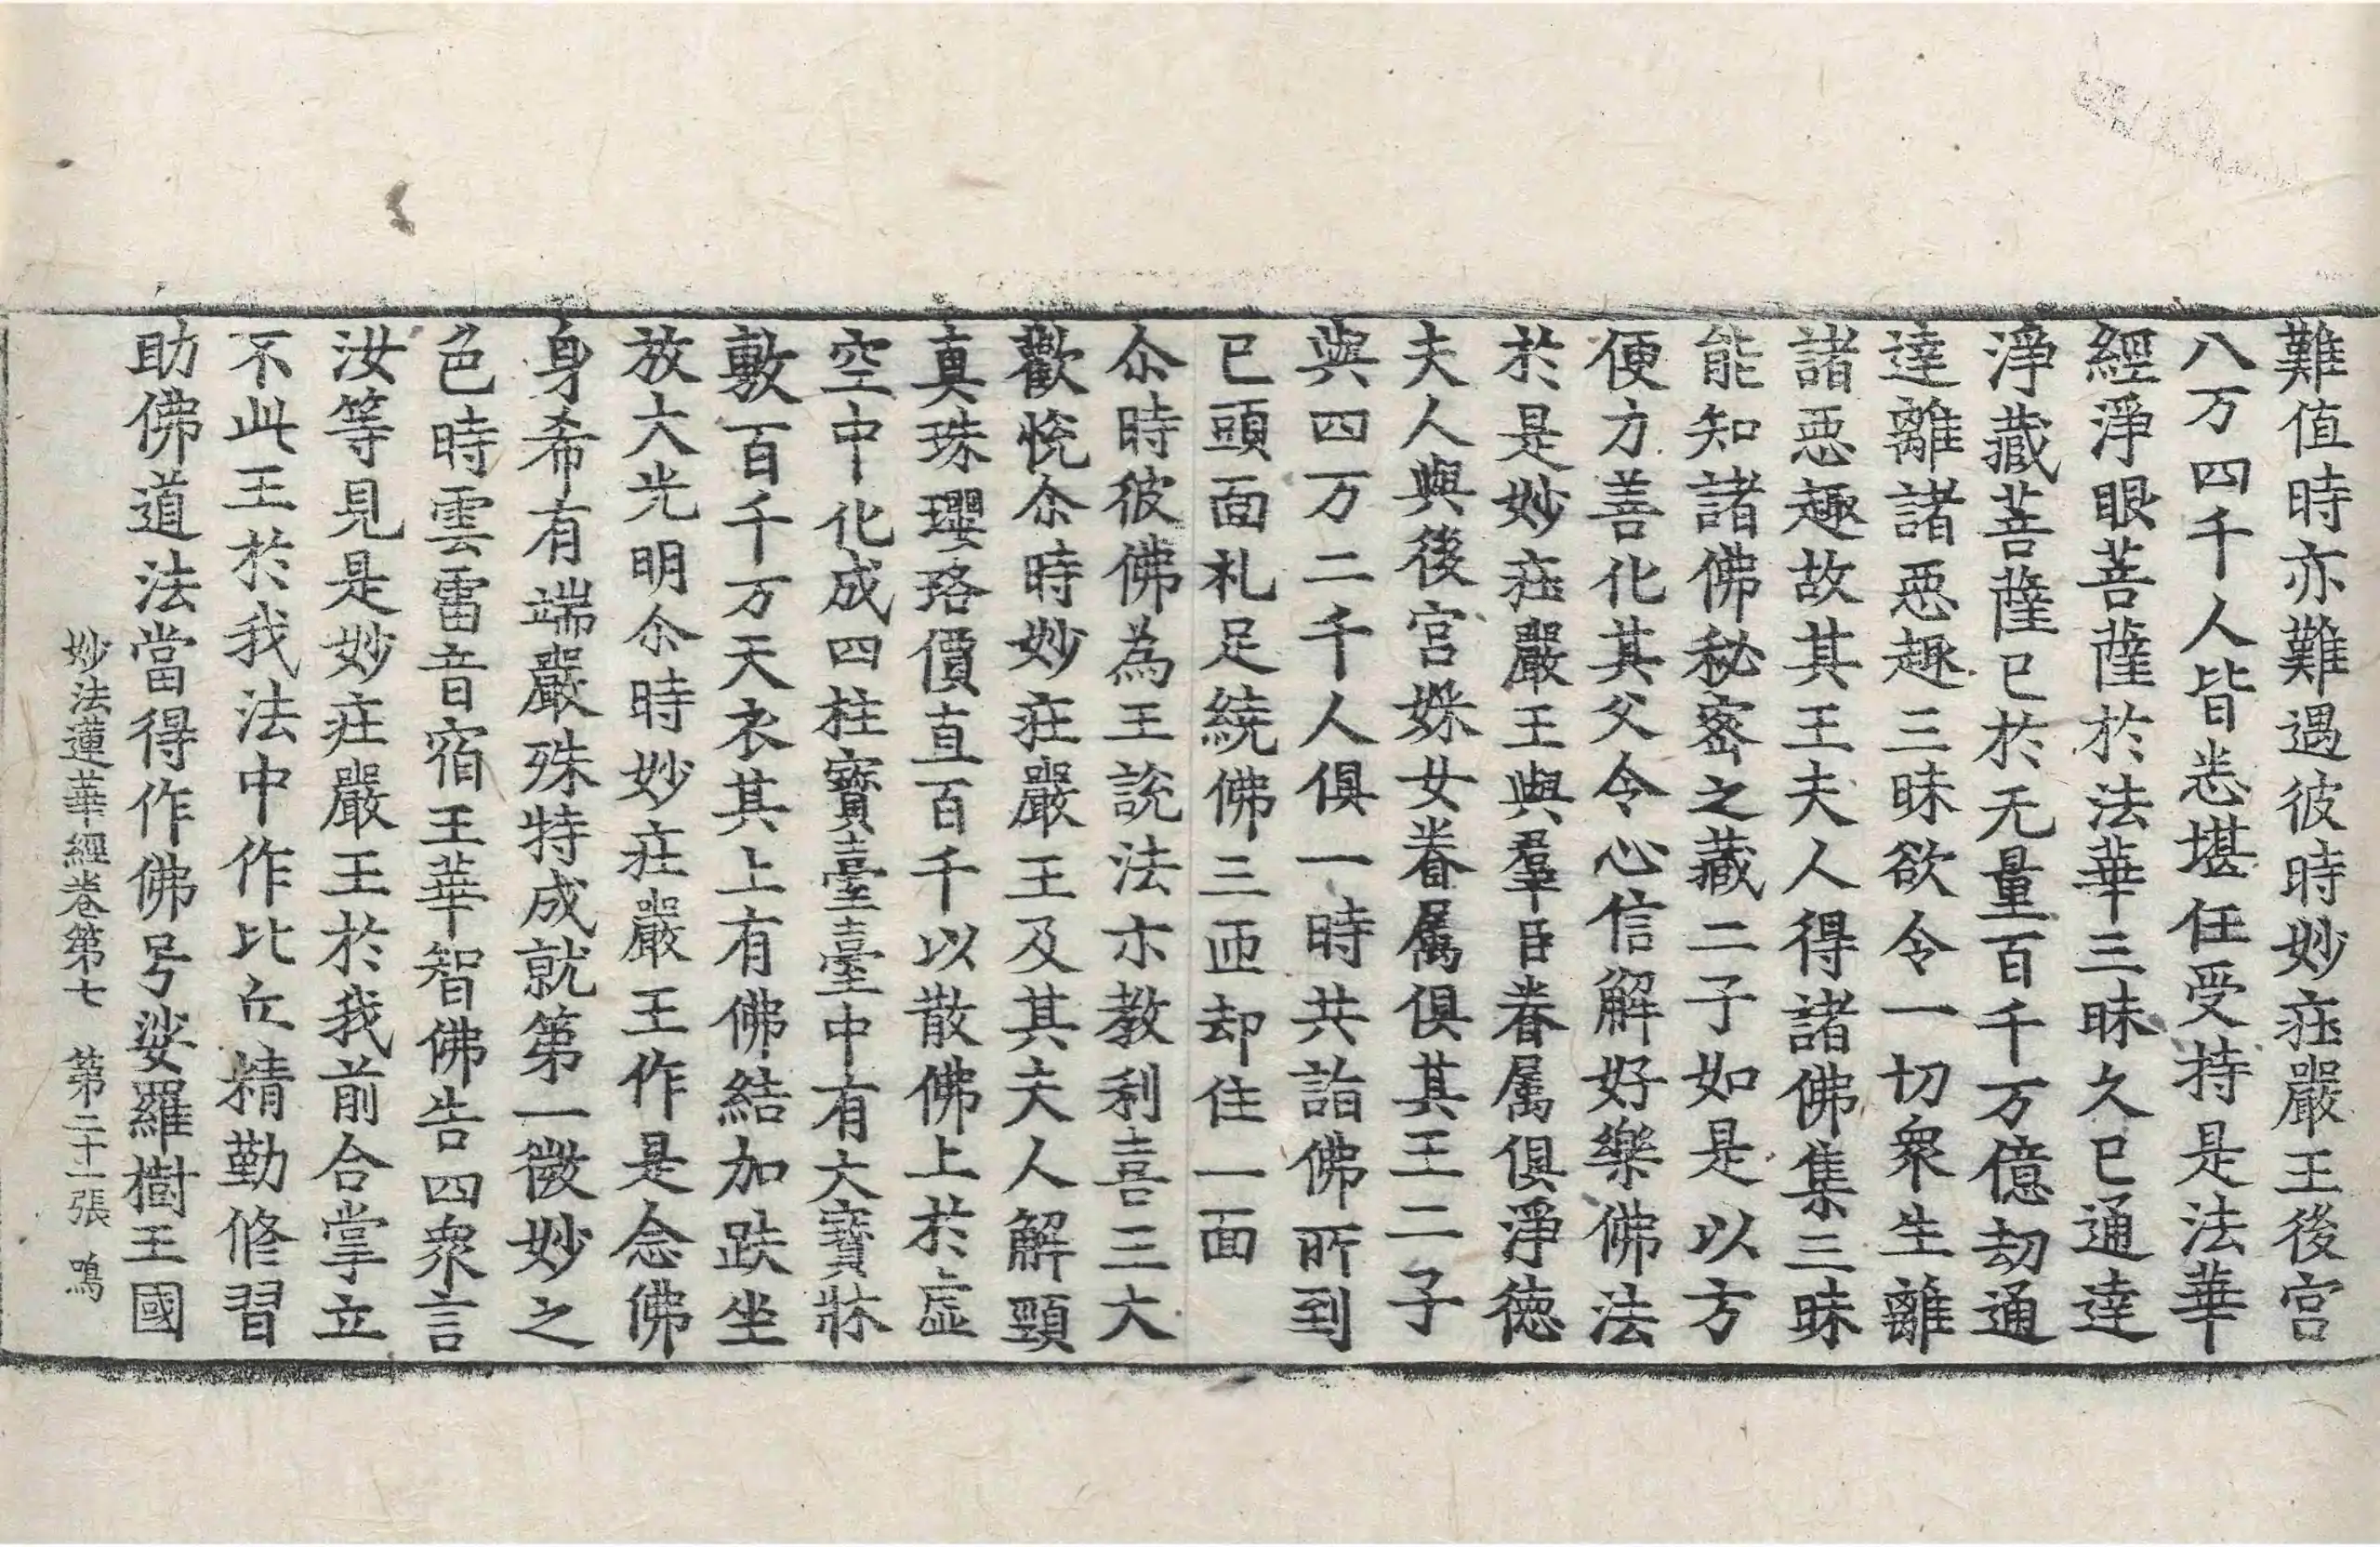 難值時亦難遇彼時妙莊嚴王後宮
八万四千人皆悉堪任受持是法華
經淨眼菩薩於法華三昧久已通達
淨藏菩薩已於无量百千万億劫通
達離諸惡趣三昧欲令一切衆生離
諸惡趣故其王夫人得諸佛集三昧
能知諸佛秘密之藏二子如是以方
便方善化其父令心信解好樂佛法
於是妙莊嚴王與羣臣眷属俱淨德
夫人與後宮婇女眷属俱其王二子
與四万二千人俱一時共詣佛所到
已頭面礼足繞佛三匝却住一面
尒時彼佛為王說法示教利喜王大
歡悅尒時妙莊嚴王及其夫人解頸
真珠瓔珞價直百千以散佛上於虛
空中化成四柱寶臺臺中有大寶牀
敷百千万天衣其上有佛結加趺坐
放大光明尒時妙莊嚴王作是念佛
身希有端嚴殊特成就第一微妙之
色時雲雷音宿王華智佛告四衆言
汝等見是妙莊嚴王於我前合掌立
不此王於我法中作比丘精勤修習
助佛道法當得作佛号娑羅樹王國
妙法蓮華經卷第七 第二十一張 鳴